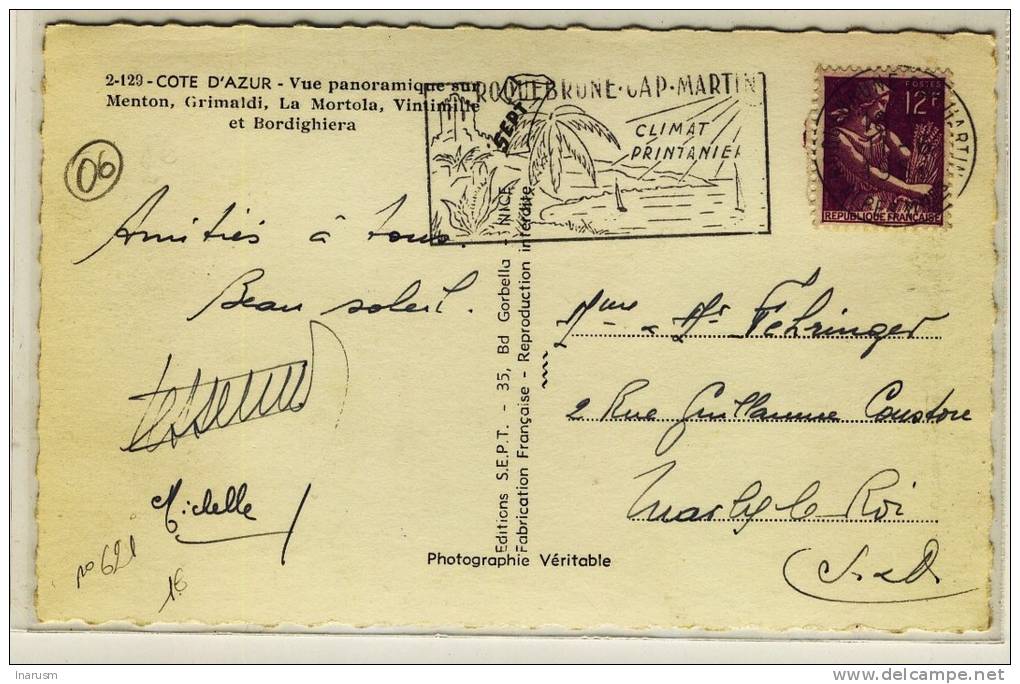 2-129 - COTE D'AZUR - Vue panoramique sur
Menton, Grimaldi, La Mortola, Vintimille
et Bordighiera
06
ROQUEBRUNE-CAP-MARTIN
CLIMAT
PRINTANIER
SEPT
POSTES
12F
REPUBLIQUE FRANÇAISE
Amitiés à tous.
Beau soleil.
Michelle
n° 621
1€
Editions S.E.P.T. - 35, Bd Gorbella - NICE
Fabrication Française - Reproduction interdite
Photographie Véritable
Mme & Mr Fehringer
2 Rue Guillaume Coustou
Marly le Roi
S&O
delcampe.net
lnarusm